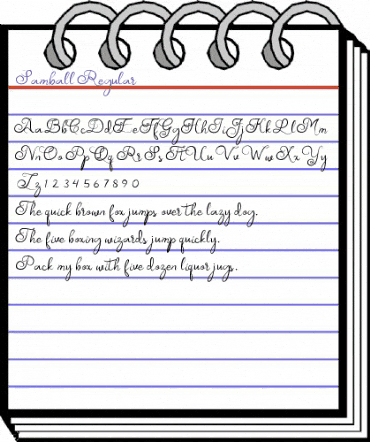 Samball Regular
AaBbCcDdEeFfGgHhIiJjKkLlMm
NnOoPpQqRrSsTtUuVvWwXxYy
Zz1234567890
The quick brown fox jumps over the lazy dog.
The five boxing wizards jump quickly.
Pack my box with five dozen liquor jugs.